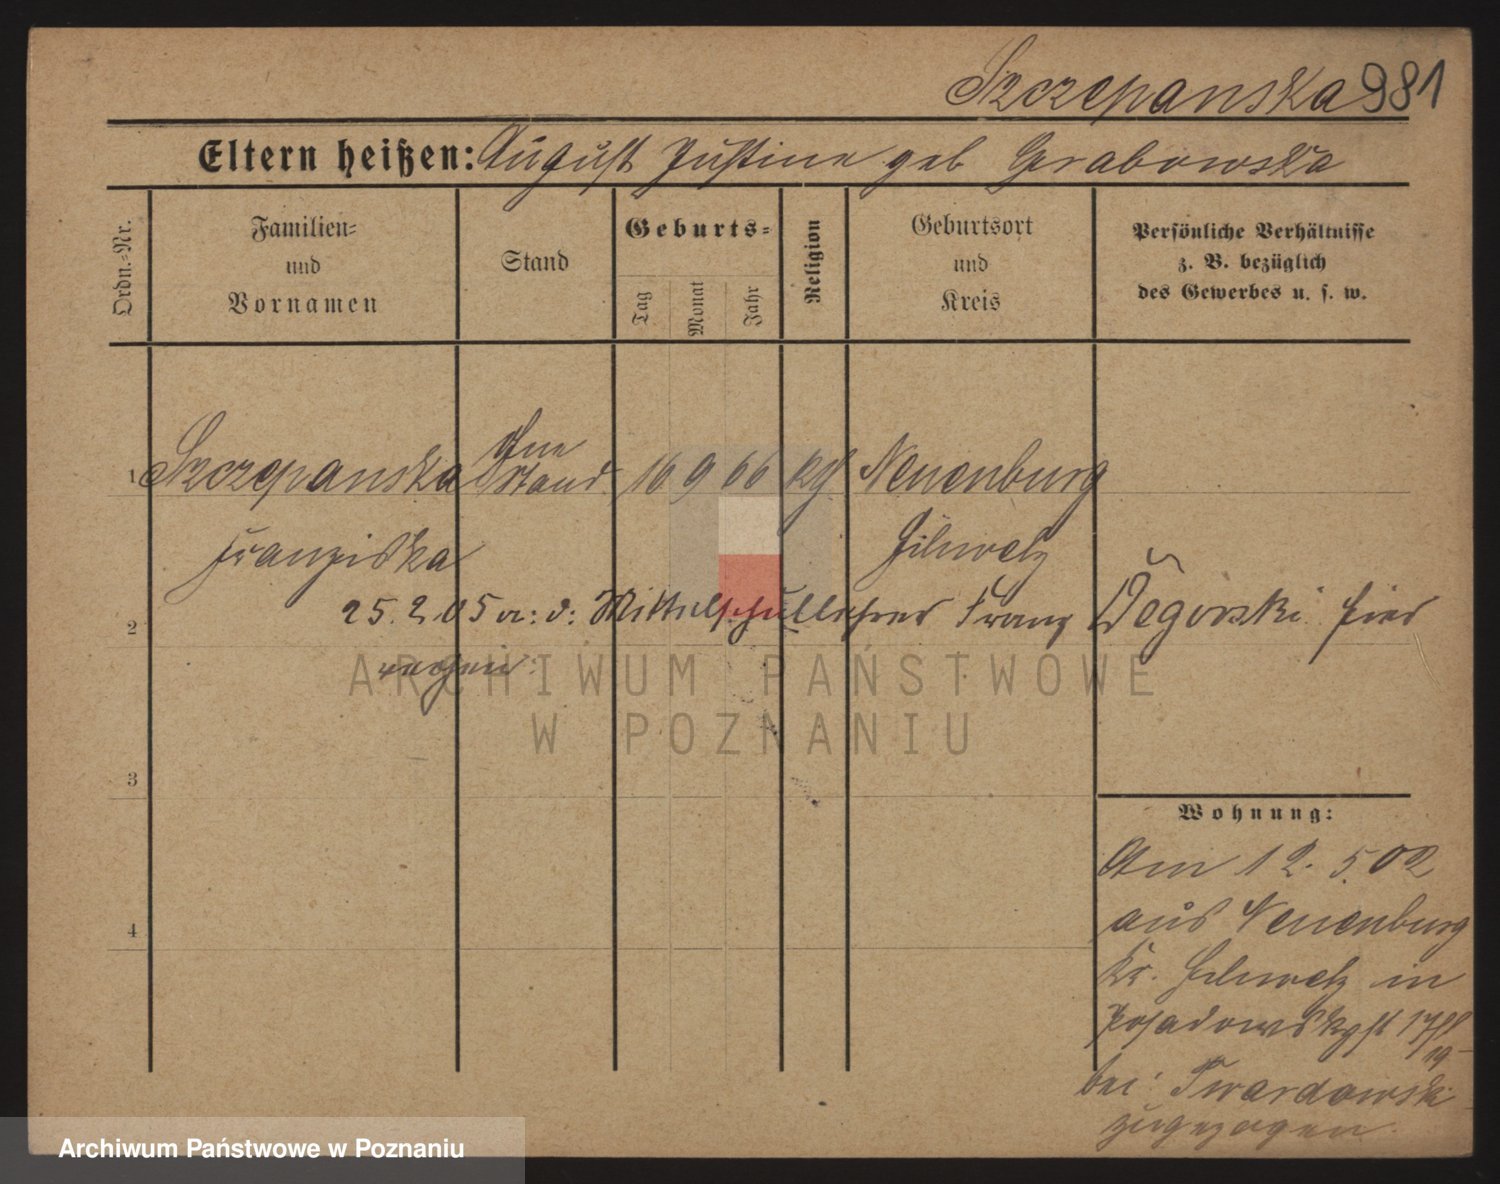 Szczepanska 981
Eltern heißen: August Justine geb Grabowska
Ordn.-Nr.
Familien-
und
Vornamen
Stand
Geburts-
Tag
Monat
Jahr
Religion
Geburtsort
und
Kreis
Persönliche Verhältnisse
z. B. bezüglich
des Gewerbes u. s. w.
ohne
1 Szczepanska Stand 16 9 66 Neuenburg
Franziska
2
25. 2. 05 a: d: Mittelschullehrer Franz hier
ARCHIWUM PAŃSTWOWE
W POZNANIU
3
Wohnung:
Am 12. 5. 02
4
aus Neuenburg
Kr. in
Posadowskyst 17
bei Twardowski
zugezogen.
Archiwum Państwowe w Poznaniu